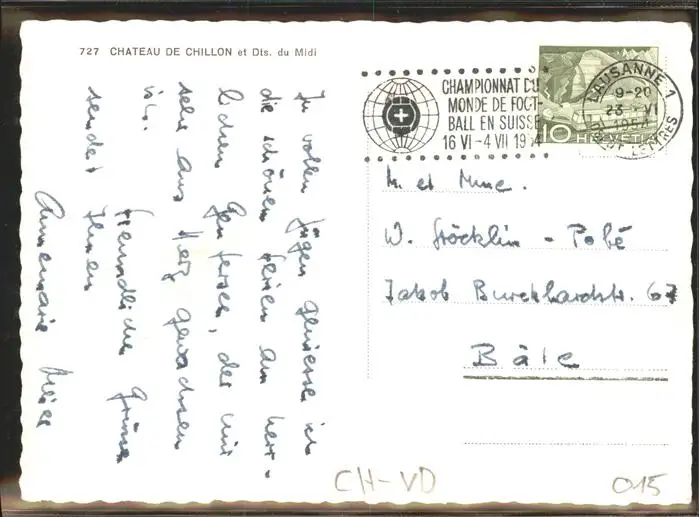 727 CHATEAU DE CHILLON et Dts. du Midi
CHAMPIONNAT DU
MONDE DE FOOT-
BALL EN SUISSE
16 VI - 4 VII 1954
LAUSANNE 1
9-20
23 - VI
1954
LETTRES
10 HELVETIA
In vollen Zügen geniesse ich
die schönen Ferien am herr-
lichen Genfersee, der mir
sehr ans Herz gewachsen
ist.
Freundliche Grüsse
sendet Ihnen
Annemarie
M. et Mme.
W. Stöcklin - Pobé
Jakob Burckhardtstr. 67
Bâle
CH-VD
015